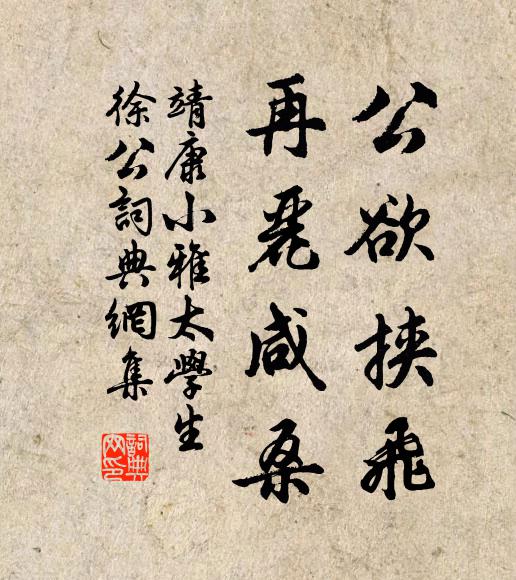 公欲挟飛
再麗咸桑
靖康小雅太學生
徐公詞典網集
詞典
网印